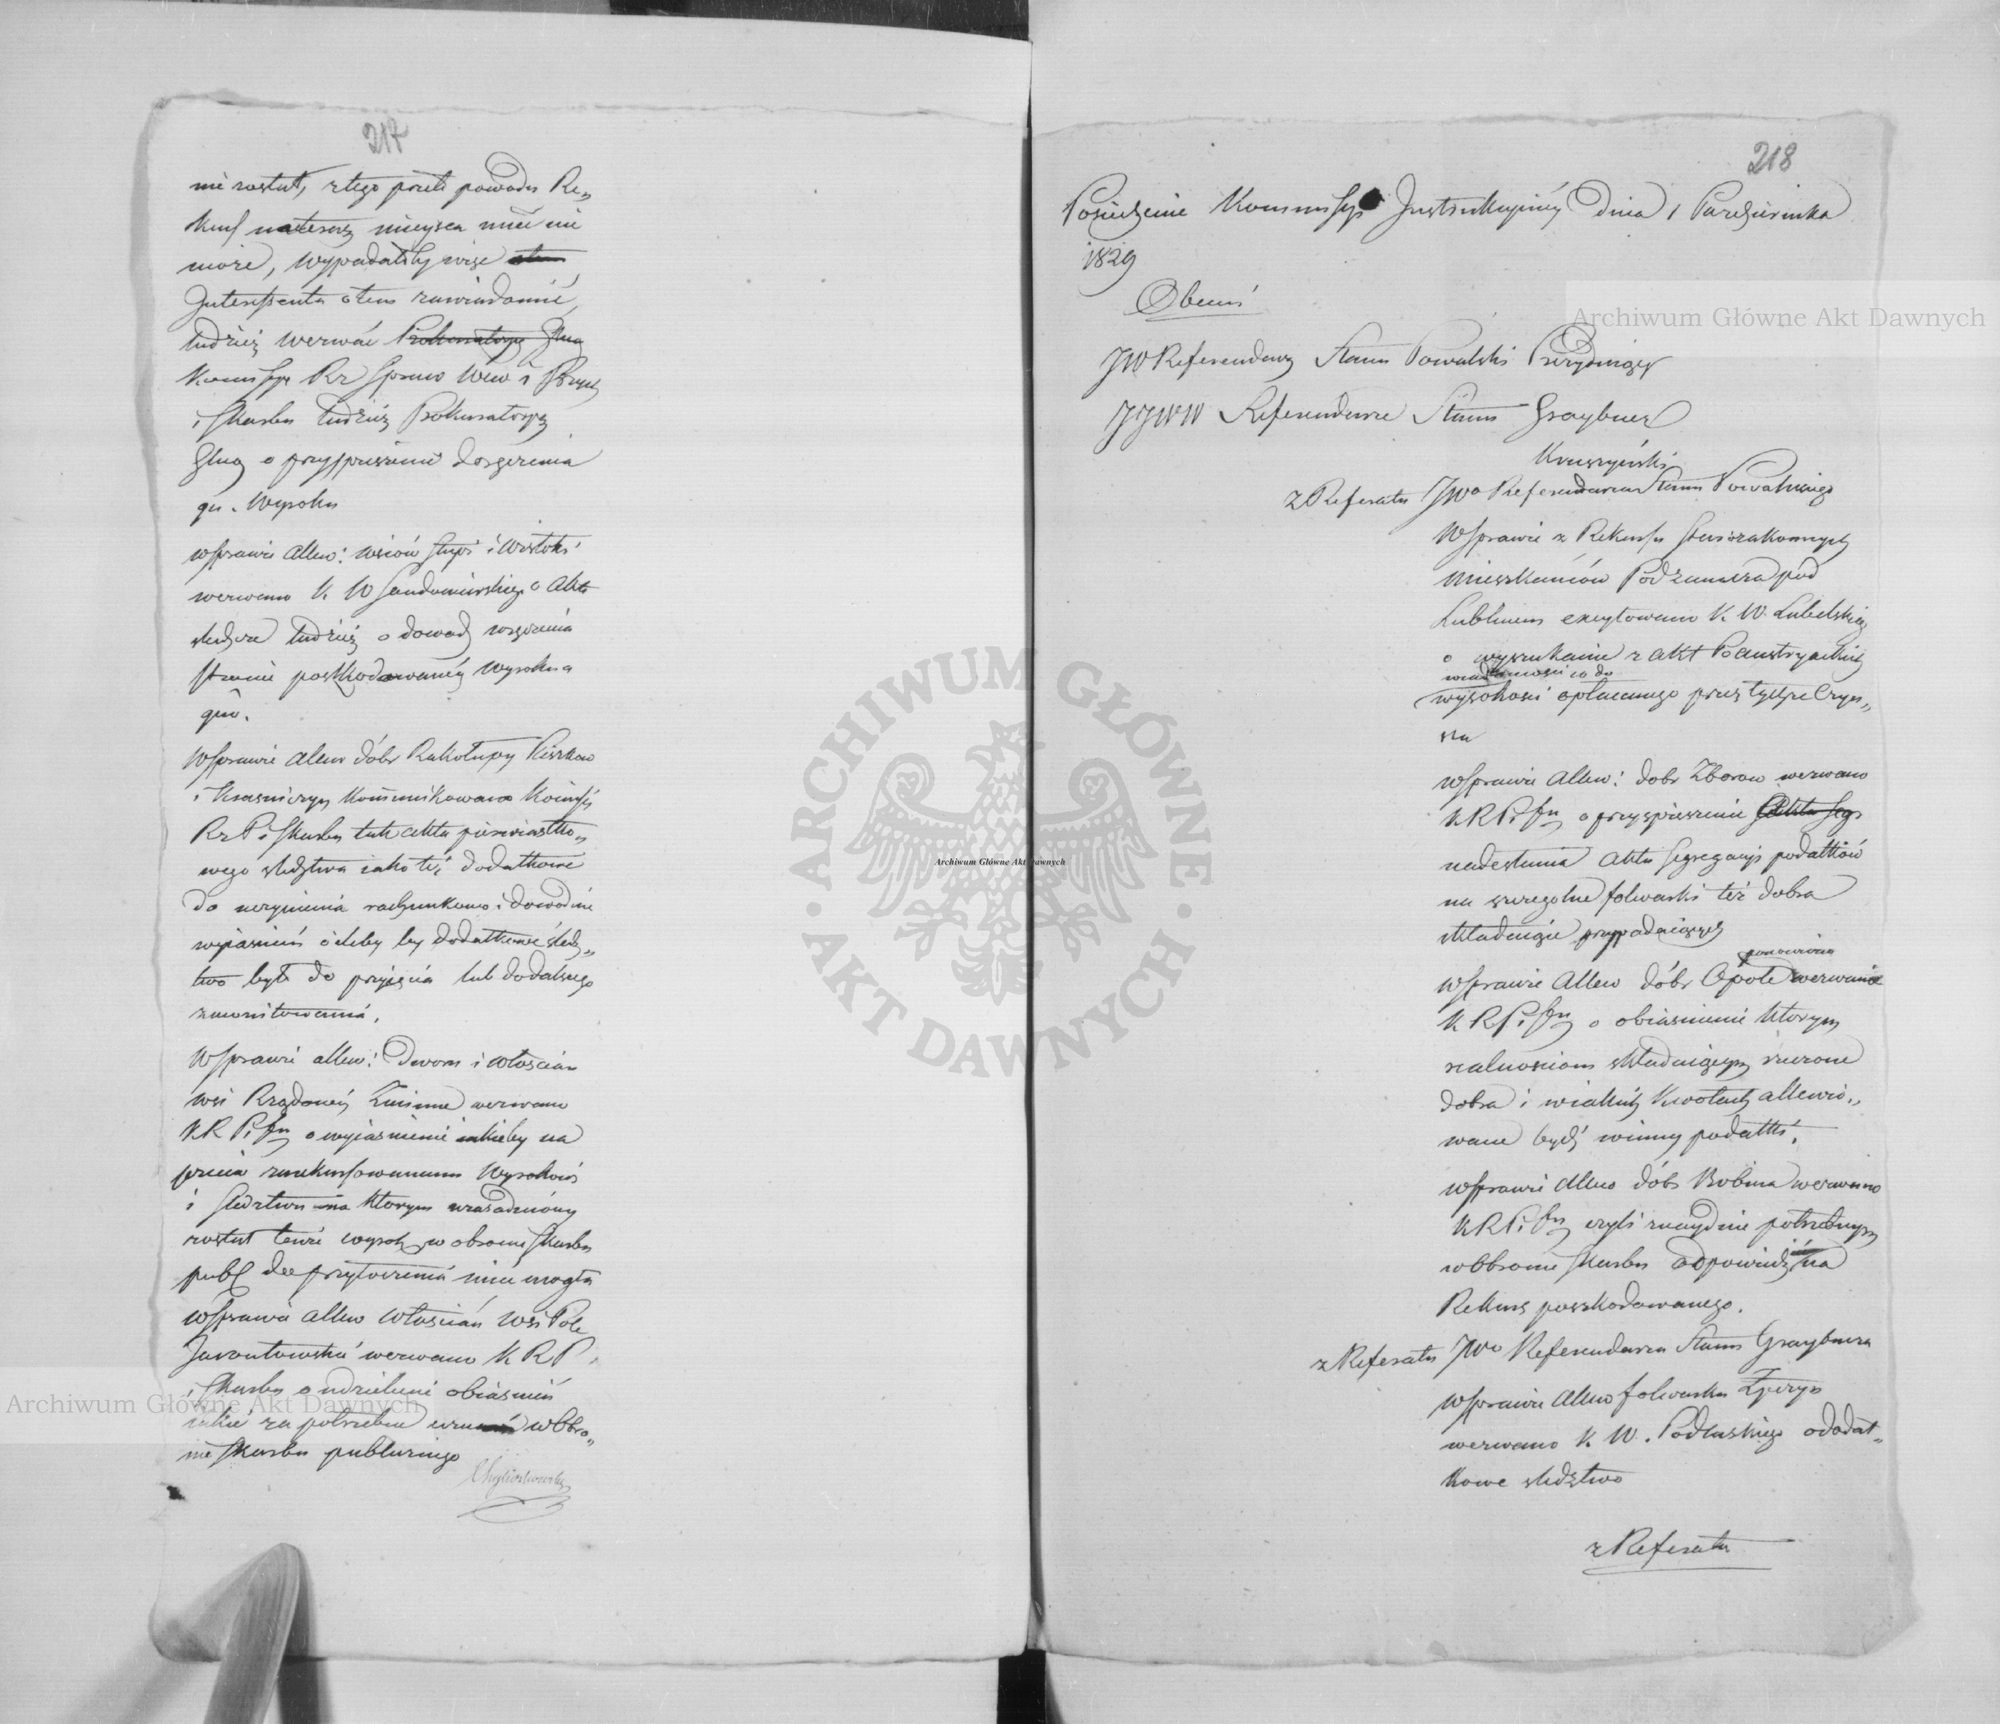 217
nie został, z tego przeto powodu Re„
kurs na teraz mieysca mieć nie
może, wypadałoby więc
Interessenta o tem zawiadomić,
tudzież wezwać Prokuratoryą Glną
Kommissye Rz Spraw Wew i
i Skarbu tudzież Prokuratoryą
Glną o przyspieszenie doręczenia
gu. Wyroku
W sprawie allew: wsiów Słupi i
wezwano K. W Sandomierskiego o Akta
śledcze tudzież o dowód wręczenia
stronie poszkodowanéy wyroku
gŵ.
W sprawie alew dóbr Rakołupy
i Krasniczyn kommunikowano
Rz P i Skarbu tak akta pierwiastko„
wego śledztwa iako też dodatkowe
do uczynienia rachunkowo i dowodnie
wyiaśnień ażeby by dodatkowe śledz„
two było do przyięcia lub dodalszego
zmonitowania.
W sprawie allew: Dworu i Włościan
wsi Rządowéy wezwano
K R P i o wyiaśnienie iakieby na
przeciw zarekursowanemu Wyrokowi
i śledztwu na ktorym uzasadniony
został tenże wyrok w obronie Skarbu
publ do przytoczenia mieć mogła
W sprawie allew Włościan wsi Pole
wezwano K R P.
i Skarbu o udzielenie obiaśnień
iakie za potrzebne uzna w obro„
nie Skarbu publicznego
218
Posiedzenie Kommissyi Instrukcyinéy dnia 1 Pazdziernika
1829
Obecni
JW Referendarz Stanu Powalski Prezyduiący
JJWW Referendarze Stanu Graybner
Kruszyński
z Referatu JWo Referendarza Stanu Powalskiego
W sprawie z Rekursu Starozakonnych
mieszkańców Podzamcza pod
Lublinem excytowano K. W. Lubelskiey
o wyszukanie z akt Poaustryackich
wiadomości co do
wysokości opłacanego przez tychże Czyn„
szu
W sprawie Allew: dobr Zborow wezwano
K R P i o przyspieszenie Akta Seg
nadesłania Aktu segregacyi podatków
na szczegolne folwarki też dobra
składaiące przypadaiących
ponownie
W sprawie Allew dóbr Opole wezwano
K R P i o obiaśnienie ktorym
realnosciom składaiącym rzeczone
dobra i w iakich kwotach allewio„
wane bydź winny podatki.
W sprawie Allew dóbr wezwano
K R P i czyli znayduie potrzebnym
w obronie Skarbu odpowiedź na
Rekurs poszkodowanego.
z Referatu JWo Referendarza Stanu Graybnera
W sprawie Allew folwarku
wezwano K. W. Podlaskiego o dodat„
kowe śledztwo
z Referatu
Archiwum Główne Akt Dawnych
Archiwum Główne Akt Dawnych
Archiwum Główne Akt Dawnych
ARCHIWUM GŁÓWNE · AKT DAWNYCH ·